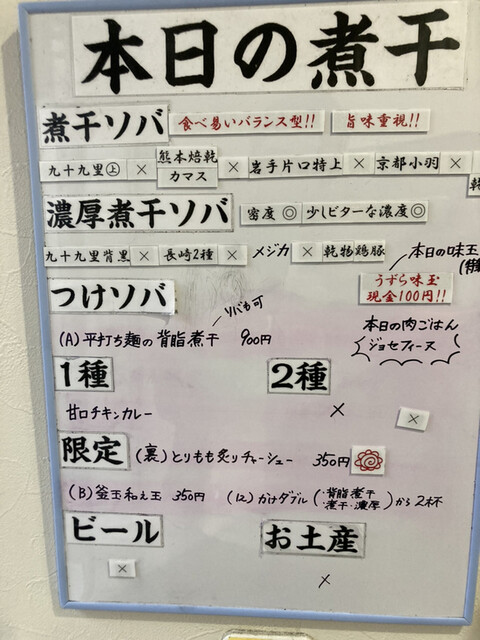 本日の煮干
煮干ソバ 食べ易いバランス型!! 旨味重視!!
九十九里㊤ × 熊本焙乾カマス × 岩手片口特上 × 京都小羽 ×
濃厚煮干ソバ 密度◎ 少しビターな濃度◎
九十九里背黒 × 長崎2種 × メジカ × 乾物鶏豚
本日の味玉
うずら味玉
現金100円!!
つけソバ
ソバも可
(A)平打ち麺の背脂煮干 900円
本日の肉ごはん
ジョセフィーヌ
1種 2種
甘口チキンカレー × ×
限定 (裏)とりもも炙りチャーシュー 350円
(B)釜玉和え玉 350円 (に)かけダブル(・背脂煮干・煮干・濃厚)から2杯
ビール お土産
× ×